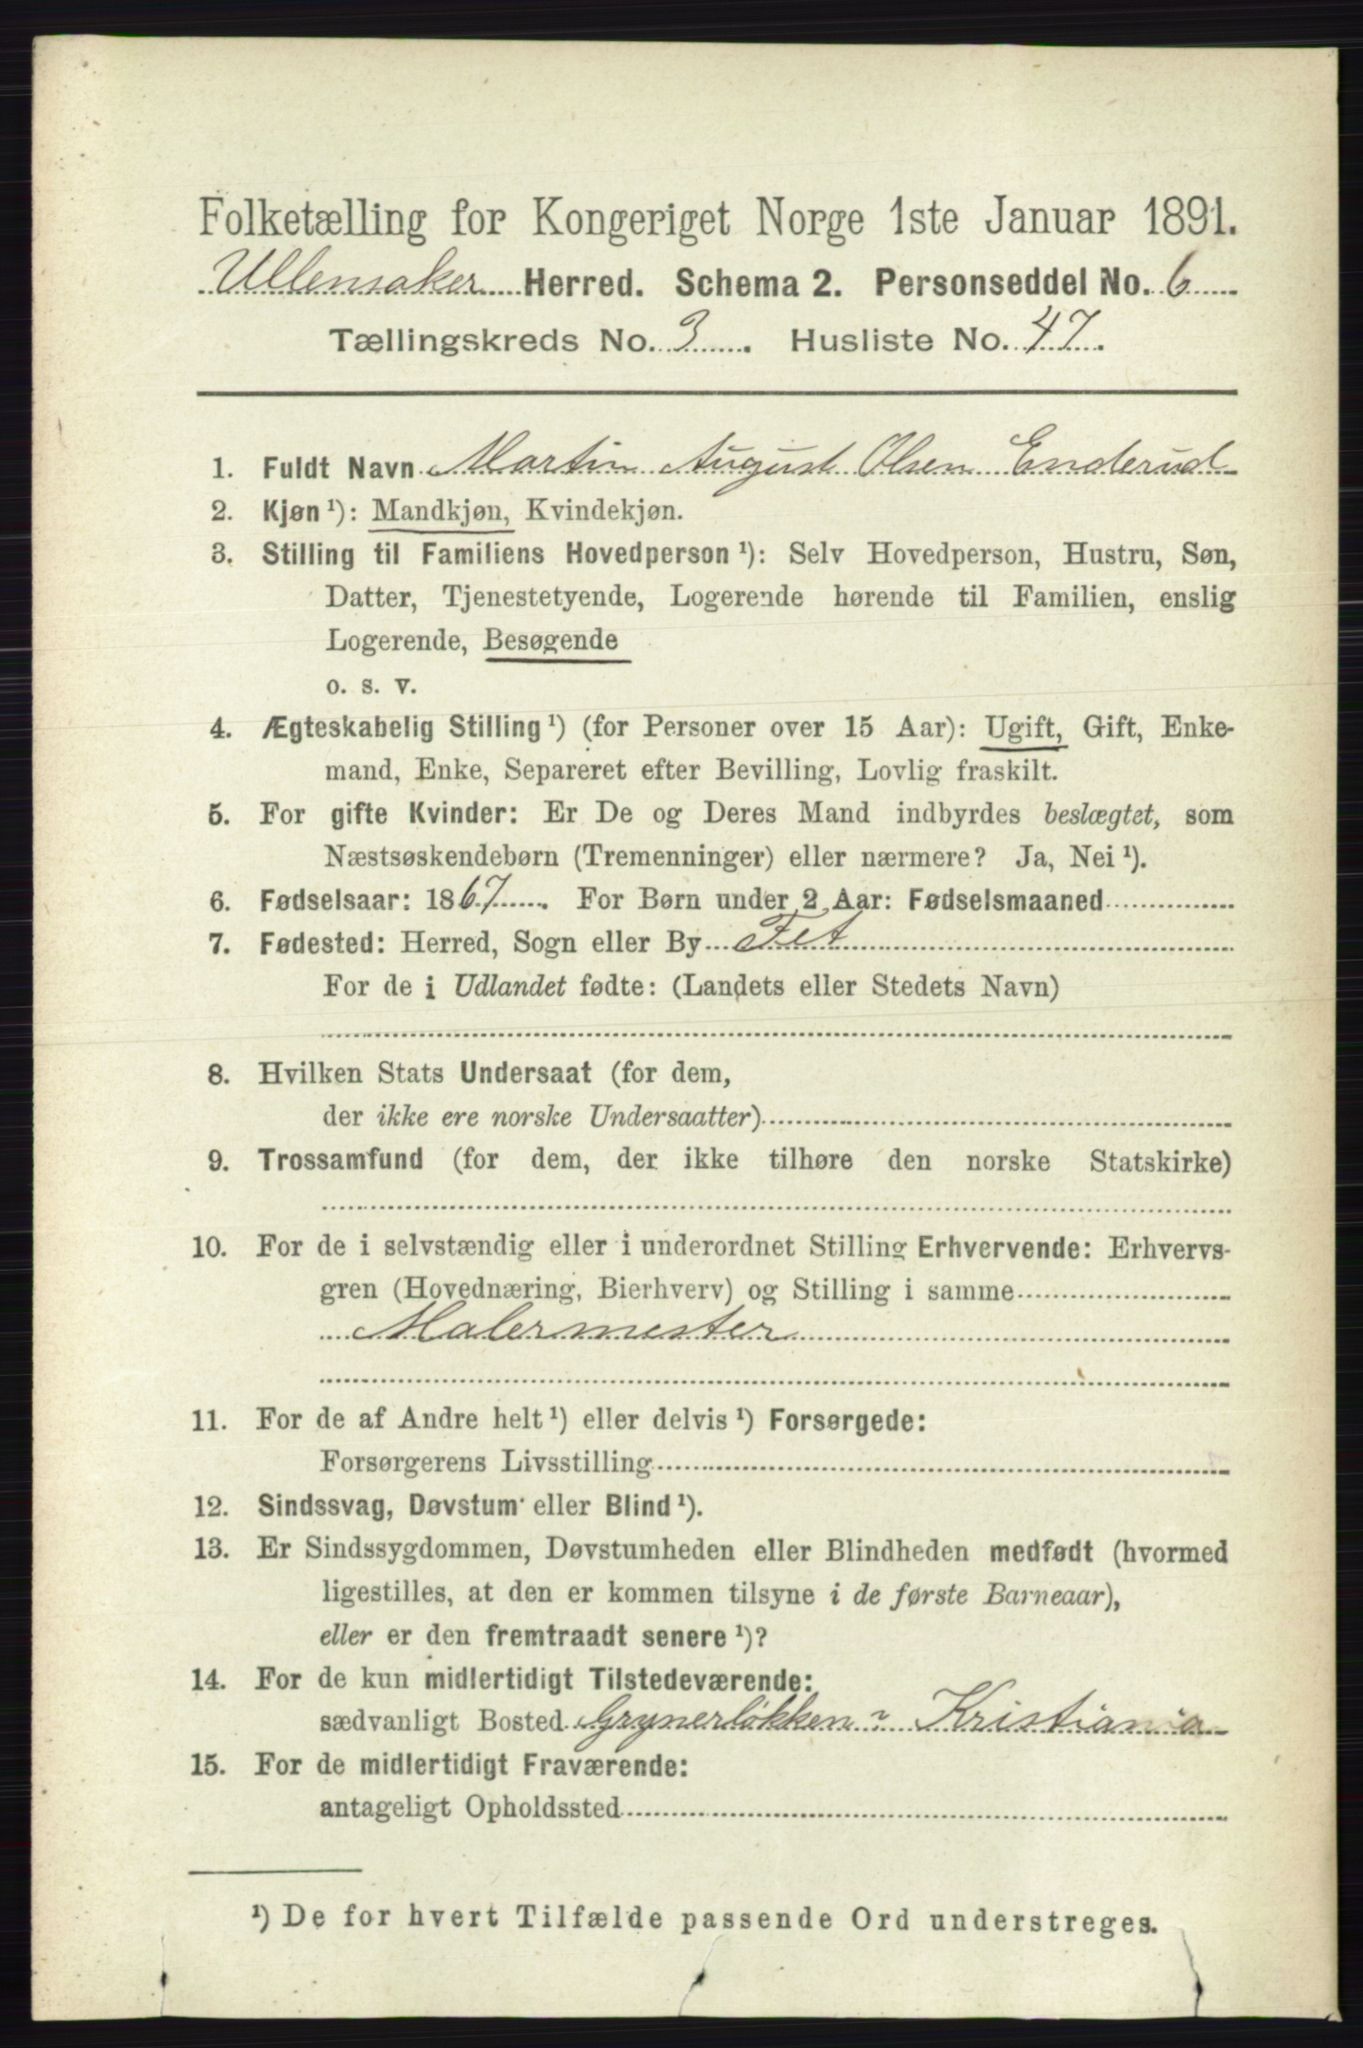 Folketælling for Kongeriget Norge 1ste Januar 1891.
Ullensaker Herred. Schema 2. Personseddel No. 6
Tællingskreds No. 3. Husliste No. 47.
1. Fuldt Navn Martin August Olsen Enderud
2. Kjøn ¹): Mandkjøn, Kvindekjøn.
3. Stilling til Familiens Hovedperson ¹): Selv Hovedperson, Hustru, Søn,
Datter, Tjenestetyende, Logerende hørende til Familien, enslig
Logerende, Besøgende
o. s. v.
4. Ægteskabelig Stilling ¹) (for Personer over 15 Aar): Ugift, Gift, Enke-
mand, Enke, Separeret efter Bevilling, Lovlig fraskilt.
5. For gifte Kvinder: Er De og Deres Mand indbyrdes beslægtet, som
Næstsøskendebørn (Tremenninger) eller nærmere? Ja, Nei ¹).
6. Fødselsaar: 1867. For Børn under 2 Aar: Fødselsmaaned
7. Fødested: Herred, Sogn eller By Fet
For de i Udlandet fødte: (Landets eller Stedets Navn)
8. Hvilken Stats Undersaat (for dem,
der ikke ere norske Undersaatter)
9. Trossamfund (for dem, der ikke tilhøre den norske Statskirke)
10. For de i selvstændig eller i underordnet Stilling Erhvervende: Erhvervs-
gren (Hovednæring, Bierhverv) og Stilling i samme
Malermester
11. For de af Andre helt ¹) eller delvis ¹) Forsørgede:
Forsørgerens Livsstilling
12. Sindssvag, Døvstum eller Blind ¹).
13. Er Sindssygdommen, Døvstumheden eller Blindheden medfødt (hvormed
ligestilles, at den er kommen tilsyne i de første Barneaar),
eller er den fremtraadt senere ¹)?
14. For de kun midlertidigt Tilstedeværende:
sædvanligt Bosted Grynerløkken Kristiania
15. For de midlertidigt Fraværende:
antageligt Opholdssted
¹) De for hvert Tilfælde passende Ord understreges.